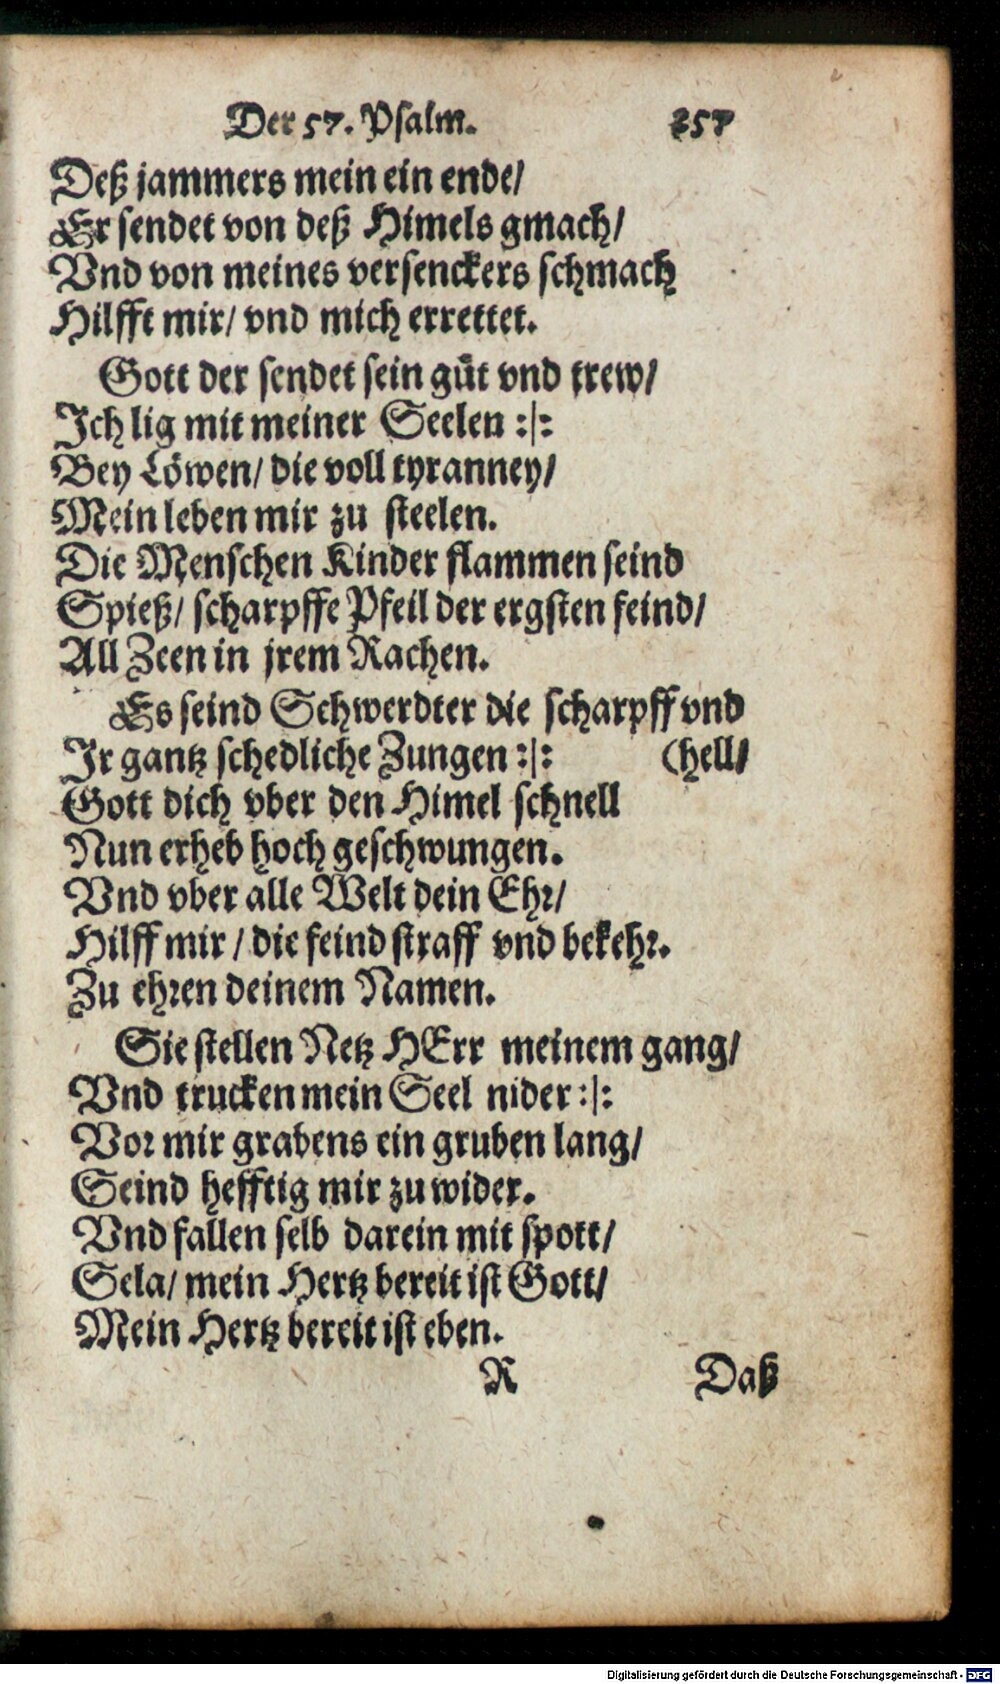 Der 57. Psalm. 257
Deß jammers mein ein ende/
Er sendet von deß Himels gmach/
Vnd von meines versenckers schmach
Hilfft mir/ vnd mich errettet.
Gott der sendet sein guͤt vnd trew/
Ich lig mit meiner Seelen :|:
Bey Löwen/ die voll tyranney/
Mein leben mir zu steelen.
Die Menschen Kinder flammen seind
Spieß/ scharpffe Pfeil der ergsten feind/
All Zeen in jrem Rachen.
Es seind Schwerdter die scharpff vnd
Ir gantz schedliche Zungen :|: (hell/
Gott dich vber den Himel schnell
Nun erheb hoch geschwungen.
Vnd vber alle Welt dein Ehr/
Hilff mir / die feind straff vnd bekehr.
Zu ehren deinem Namen.
Sie stellen Netz HErr meinem gang/
Vnd trucken mein Seel nider :|:
Vor mir grabens ein gruben lang/
Seind hefftig mir zu wider.
Vnd fallen selb darein mit spott/
Sela/ mein Hertz bereit ist Gott/
Mein Hertz bereit ist eben.
R Daß
Digitalisierung gefördert durch die Deutsche Forschungsgemeinschaft - DFG